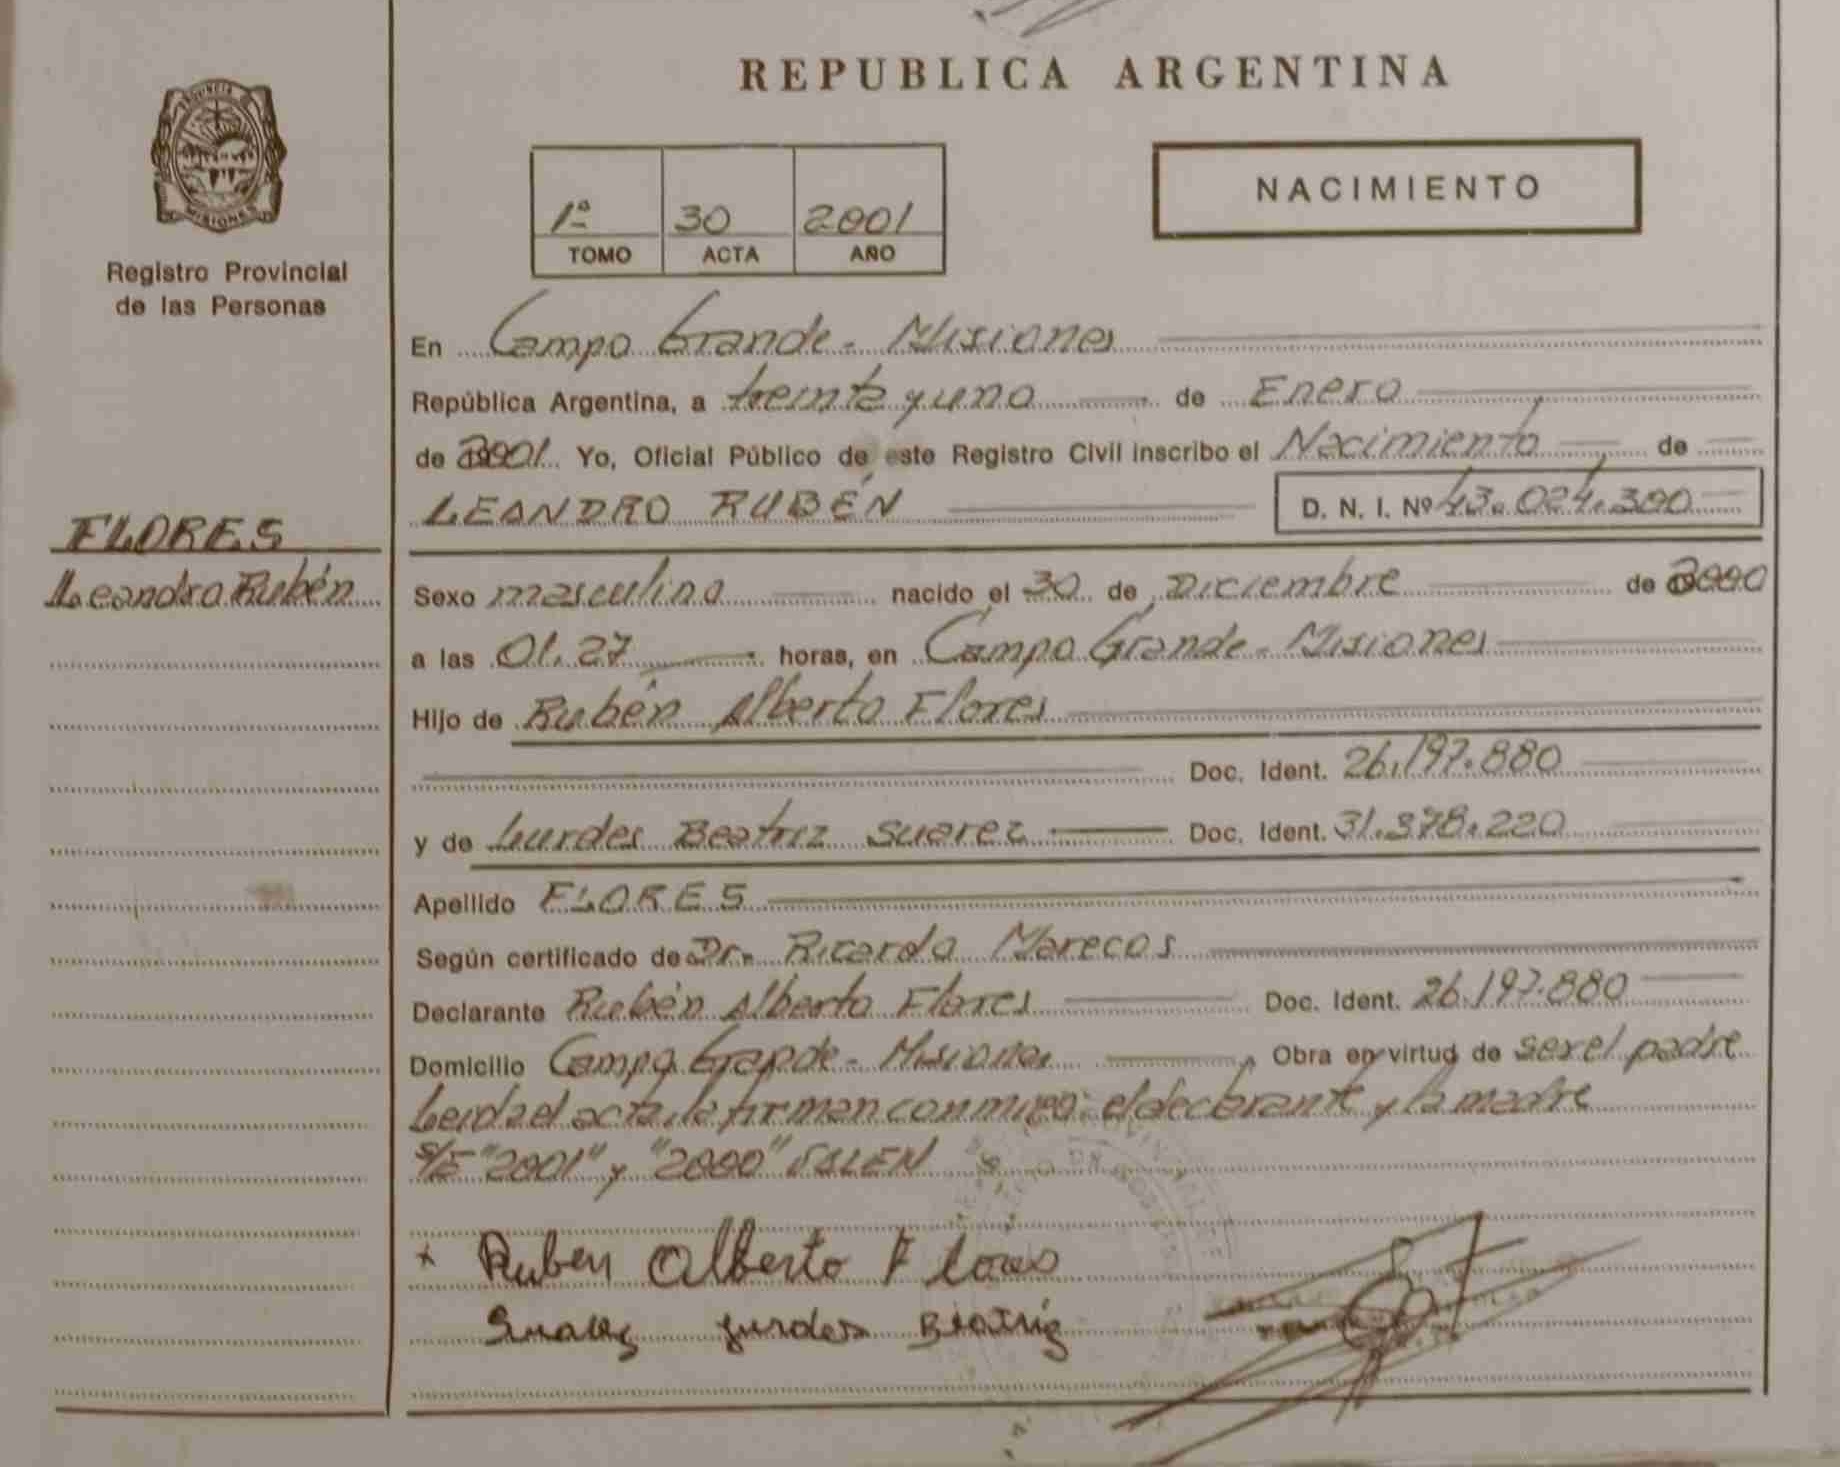 REPUBLICA ARGENTINA
PROVINCIA DE
MISIONES
Registro Provincial
de las Personas
1ª 30 2001
TOMO ACTA AÑO
NACIMIENTO
En Campo Grande - Misiones
República Argentina, a treinta y uno de Enero
de 2001 Yo, Oficial Público de este Registro Civil inscribo el Nacimiento de
LEANDRO RUBÉN D. N. I. Nº 43.024.300
FLORES
Leandro Rubén
Sexo masculino nacido el 30 de Diciembre de 2000
a las 01.27 horas, en Campo Grande - Misiones
Hijo de Rubén Alberto Flores
Doc. Ident. 26.197.880
y de Lurdes Beatriz Suarez Doc. Ident. 31.378.220
Apellido FLORES
Según certificado de Dr. Ricardo Marecos
Declarante Rubén Alberto Flores Doc. Ident. 26.197.880
Domicilio Campo Grande - Misiones Obra en virtud de ser el padre
Leida el acta, la firman conmigo: el declarante y la madre
S/E "2001" y "2000" VALEN
x Ruben Alberto Flores
Suarez Lurdes Beatriz